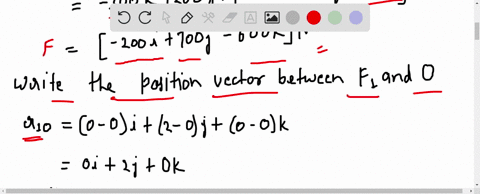 F = [-200i + 700j - 600k]
write the position vector between F₁ and O
r₁₀ = (0-0)i + (2-0)j + (0-0)k
= 0i + 2j + 0k